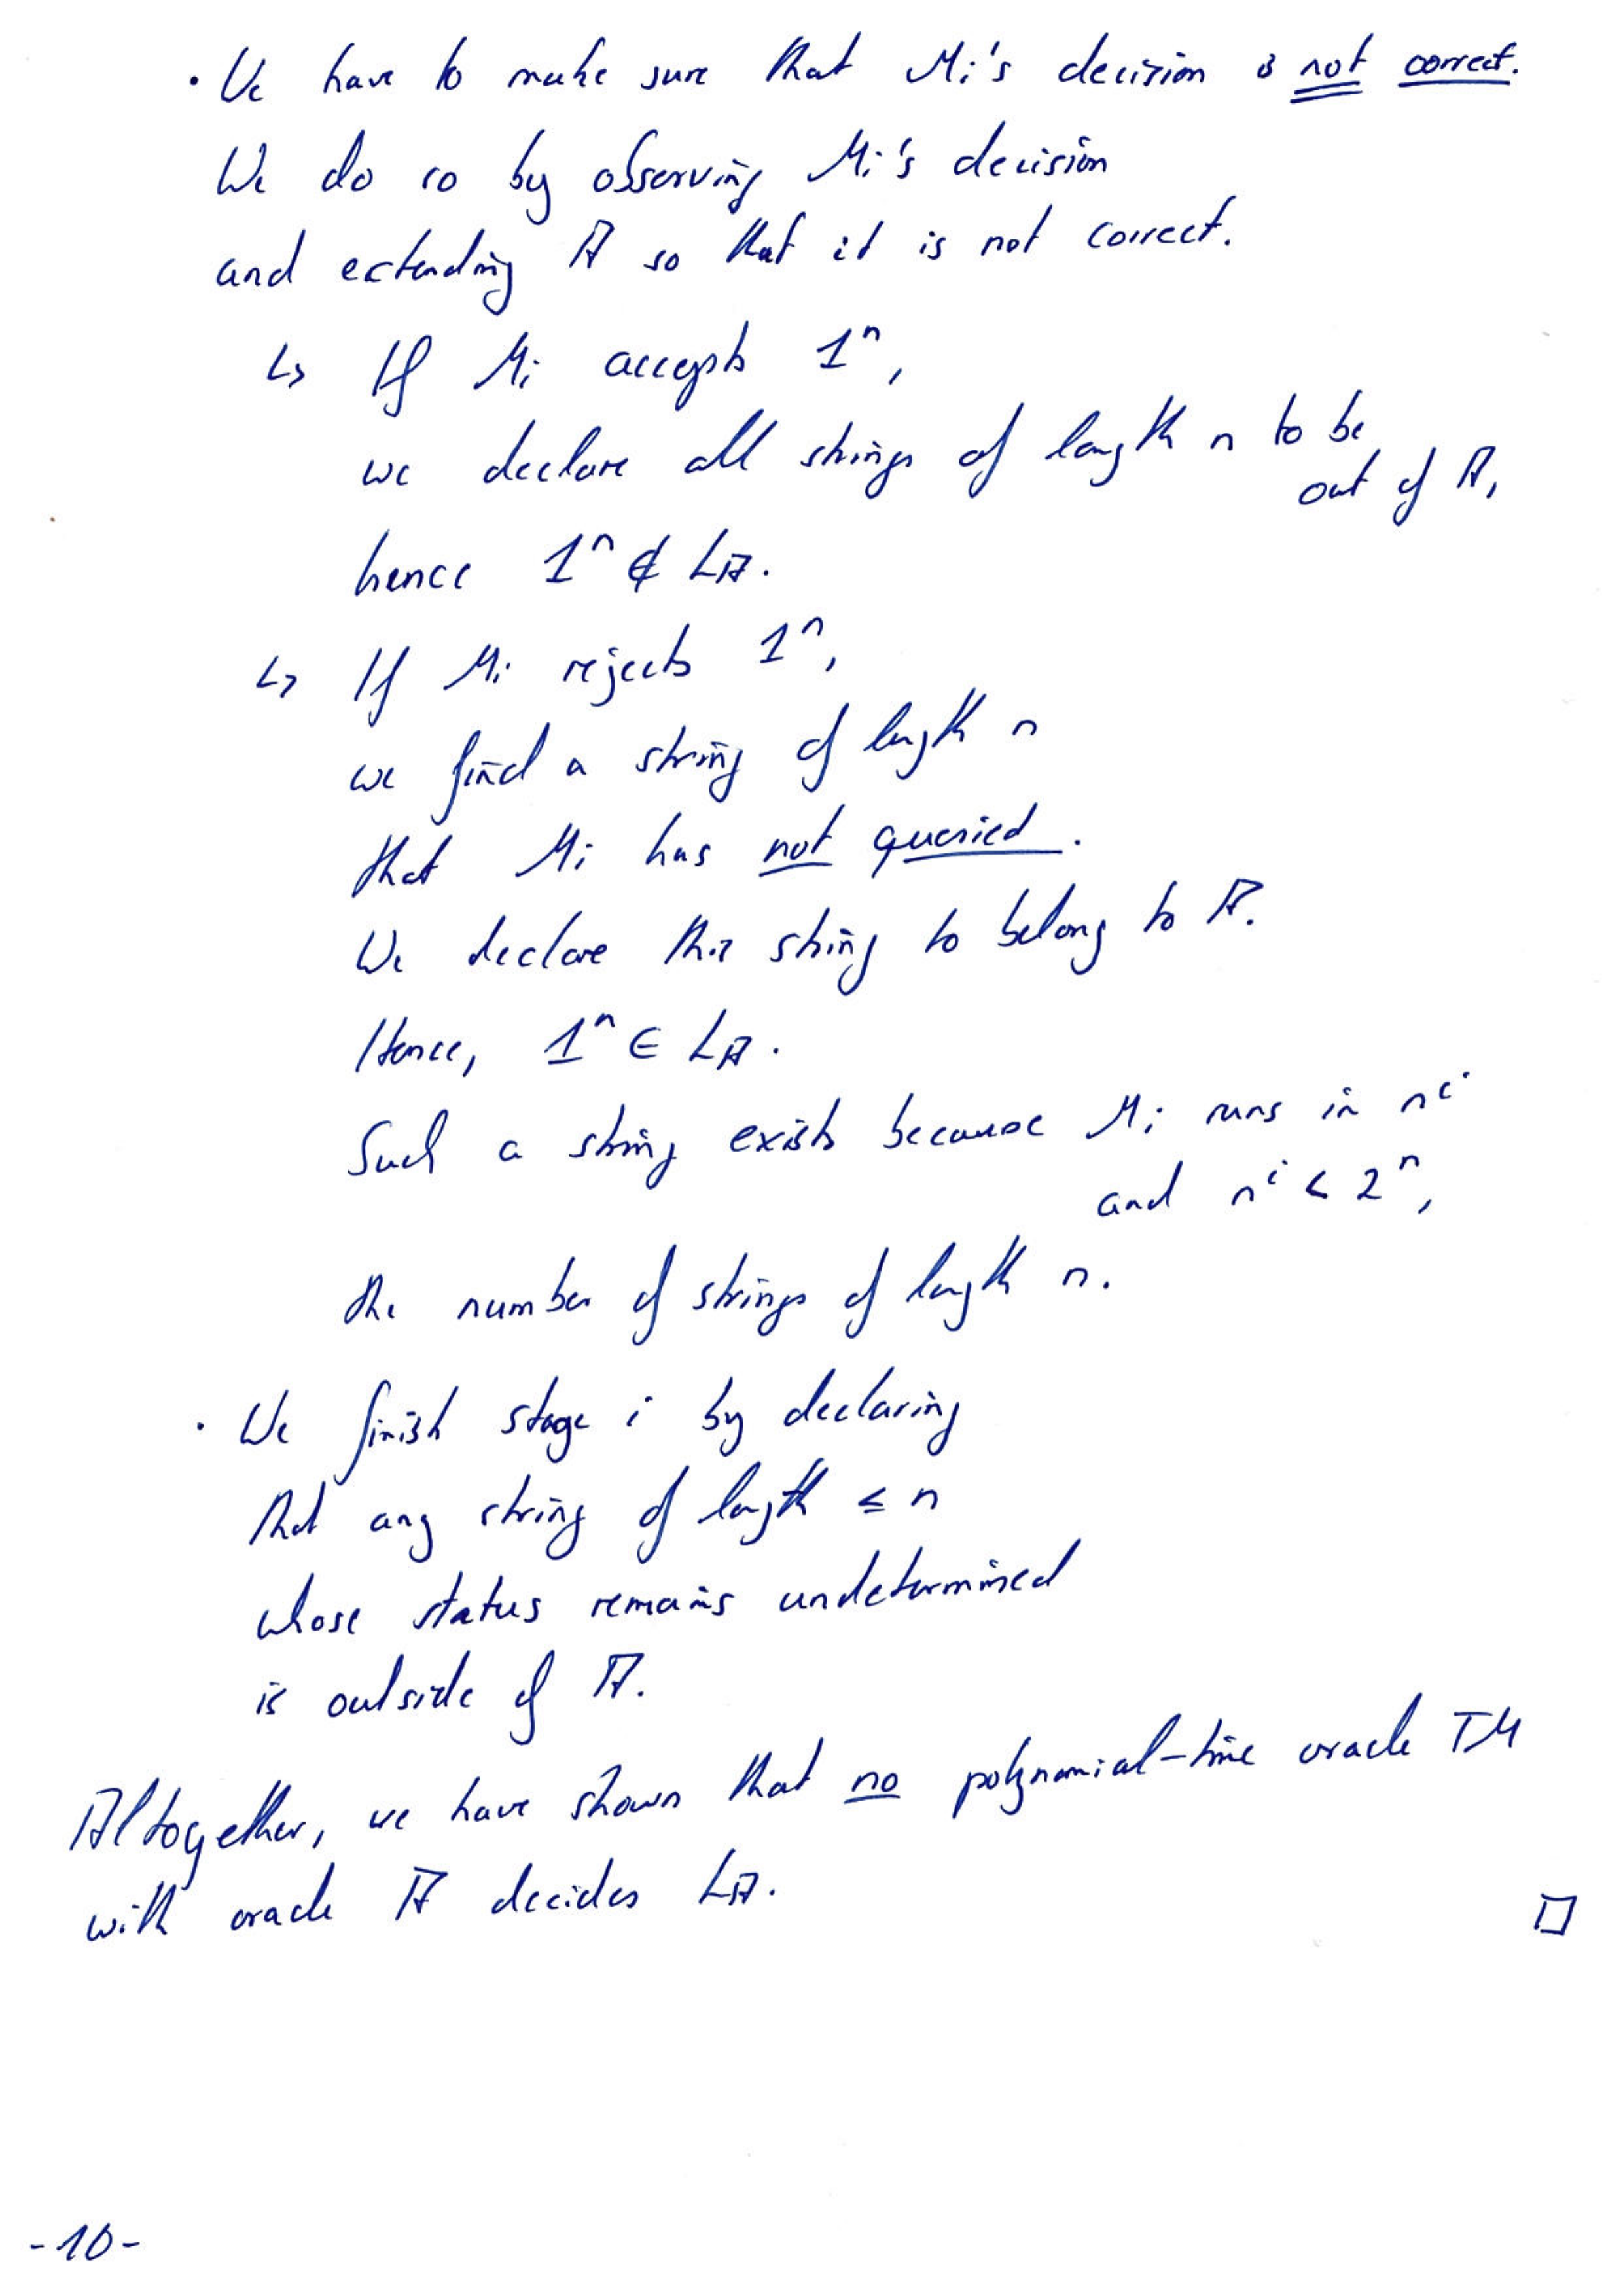 · We have to make sure that Mi's decision is not correct.
We do so by observing Mi's decision
and extending A so that it is not correct.
↳ If Mi accepts 1ⁿ,
we declare all strings of length n to be
out of A,
hence 1ⁿ ∉ L_A.
↳ If Mi rejects 1ⁿ,
we find a string of length n
that Mi has not queried.
We declare this string to belong to A.
Hence, 1ⁿ ∈ L_A.
Such a string exists because Mi runs in nⁱ
and nⁱ < 2ⁿ,
the number of strings of length n.
· We finish stage i by declaring
that any string of length ≤ n
whose status remains undetermined
is outside of A.
Altogether, we have shown that no polynomial-time oracle TM
with oracle A decides L_A.
□
-10-